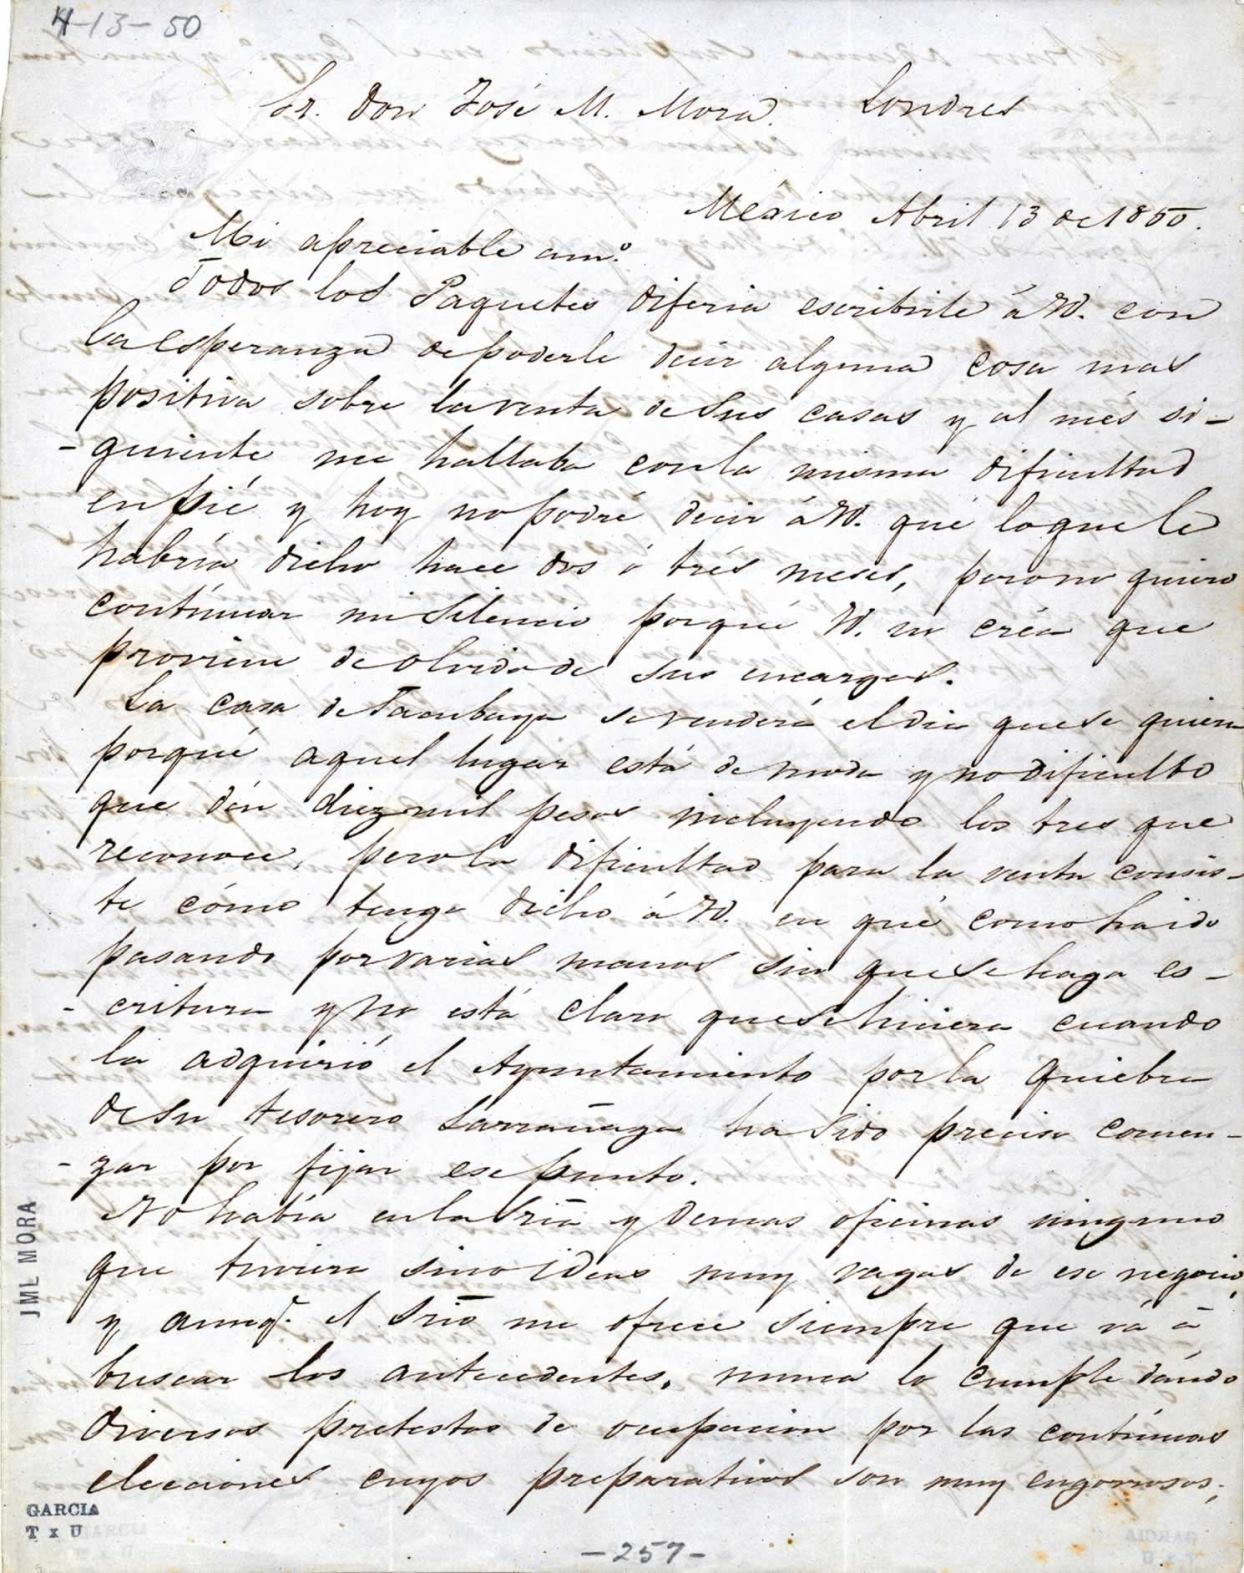 4-13-50
Sr. Don José M. Mora. Londres
México Abril 13 de 1850.
Mi apreciable am.º
Todos los Paquetes diferia escribirle á Vd. con
la esperanza de poderle decir alguna cosa mas
positiva sobre la venta de sus casas y al més si-
-guiente me hallaba con la misma dificultad
en pié y hoy no podré decir á Vd. qué lo que le
habría dicho hace dos ó trés meses, pero no quiero
contínuar mi silencio porqué Vd. no créa que
proviene de olvido de sus encargos.
La casa de Tacubaya se venderá el dia que se quiera
porqué aquel lugar está de moda y no dificulto
que dén diez mil pesos incluyendo los tres que
reconoce, pero la dificultad para la venta consis-
te cómo tengo dicho á Vd. en qué como ha ido
pasando por varias manos sin que se haga es-
-critura y no está claro que se hiciera cuando
la adquirió el Ayuntamiento por la quiebra
de su tesorero Larrañaga ha sido preciso comen-
-zar por fijar ese punto.
No había en la Sría y demas oficinas ninguno
que tuviera sino ideas muy vagas de ese negocio,
y aunq.e el Srio me ofrece siempre que vá á
buscar los antecedentes, nunca lo cumple dándo
diversos pretestos de ocupacion por las contínuas
elecciones cuyos preparativos son muy engorrosos;
JML MORA
GARCIA
T x U
-257-